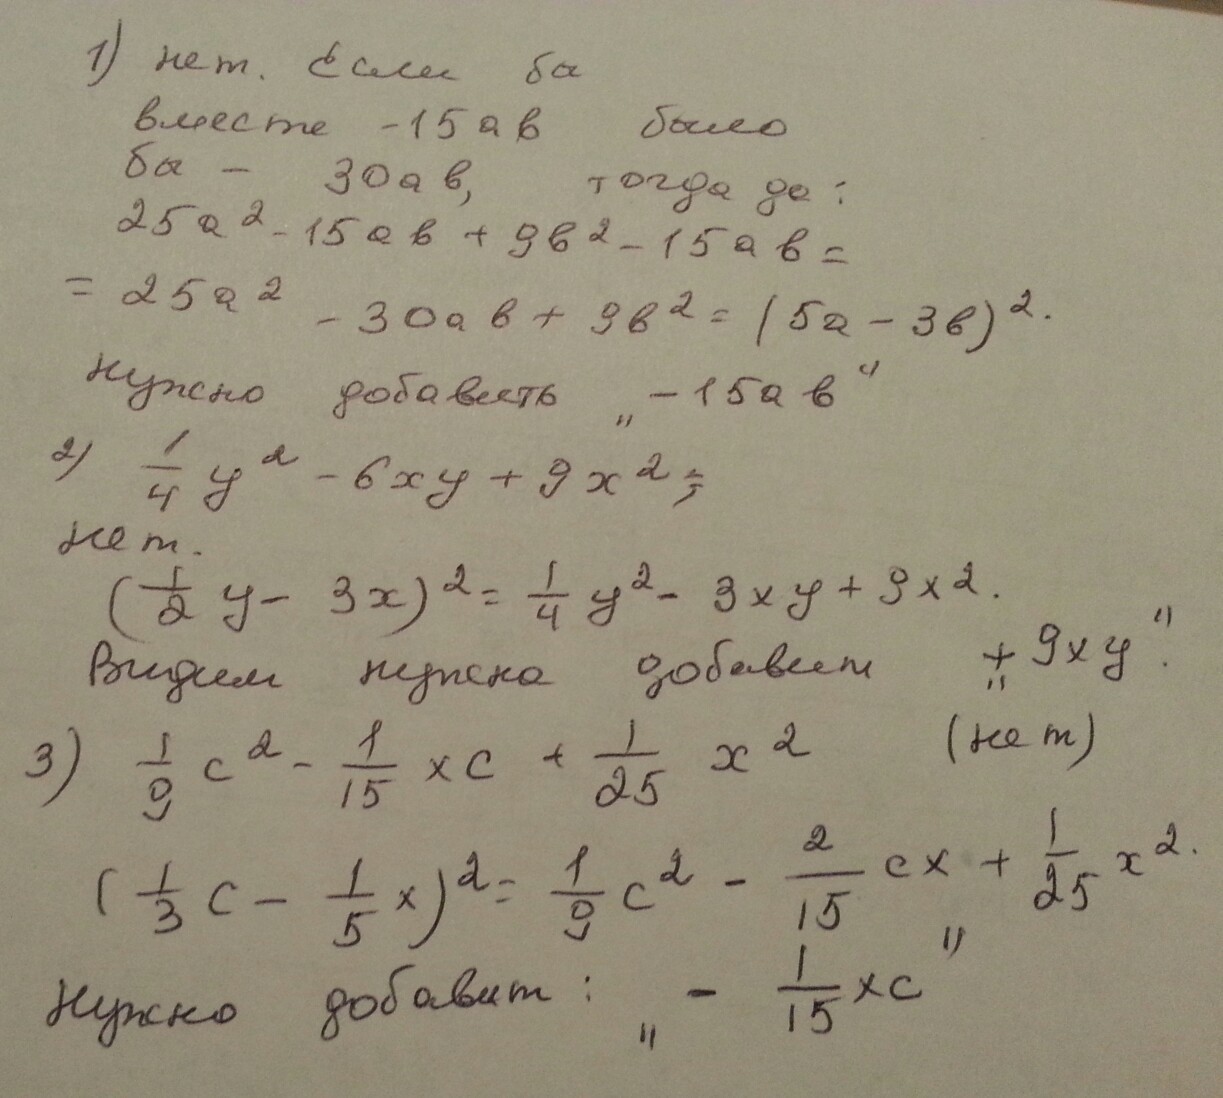 1) нет. Если бы
вместе -15ab было
бы - 30ab, тогда да:
25a² - 15ab + 9b² - 15ab =
= 25a² - 30ab + 9b² = (5a - 3b)².
Нужно добавить „-15ab"
2) 1/4 y² - 6xy + 9x² =;
Нет.
(1/2 y - 3x)² = 1/4 y² - 3xy + 9x².
Видим нужно добавит „+9xy".
3) 1/9 c² - 1/15 xc + 1/25 x² (нет)
(1/3 c - 1/5 x)² = 1/9 c² - 2/15 cx + 1/25 x².
Нужно добавит: „- 1/15 xc"